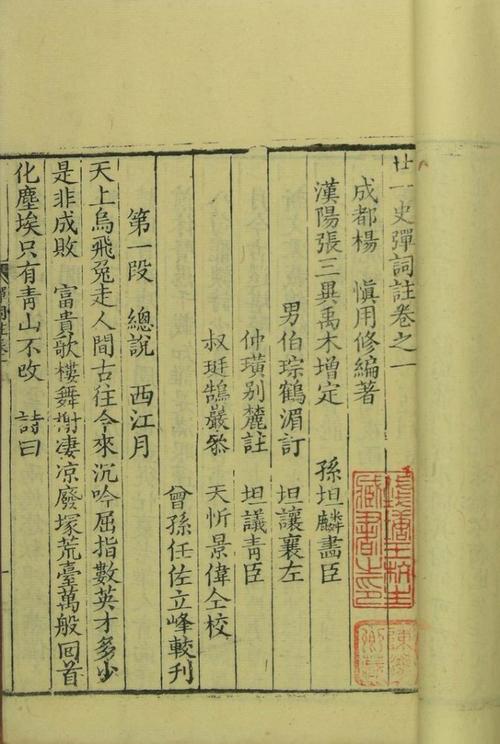 廿一史彈詞註卷之一
成都楊　愼用修編著
漢陽張三異禹木增定
孫坦麟畵臣
男伯琮鶴湄訂　坦讓襄左
仲璜别麓註　坦議青臣
叔珽鵠巖叅　天忻景偉仝校
曾孫任佐立峰較刋
第一段　總説　西江月
天上烏飛兔走人間古往今來沉吟屈指數英才多少
是非成敗　富貴歌樓舞榭凄凉廢塚荒臺萬般回首
化塵埃只有青山不改　詩曰
藏書之印